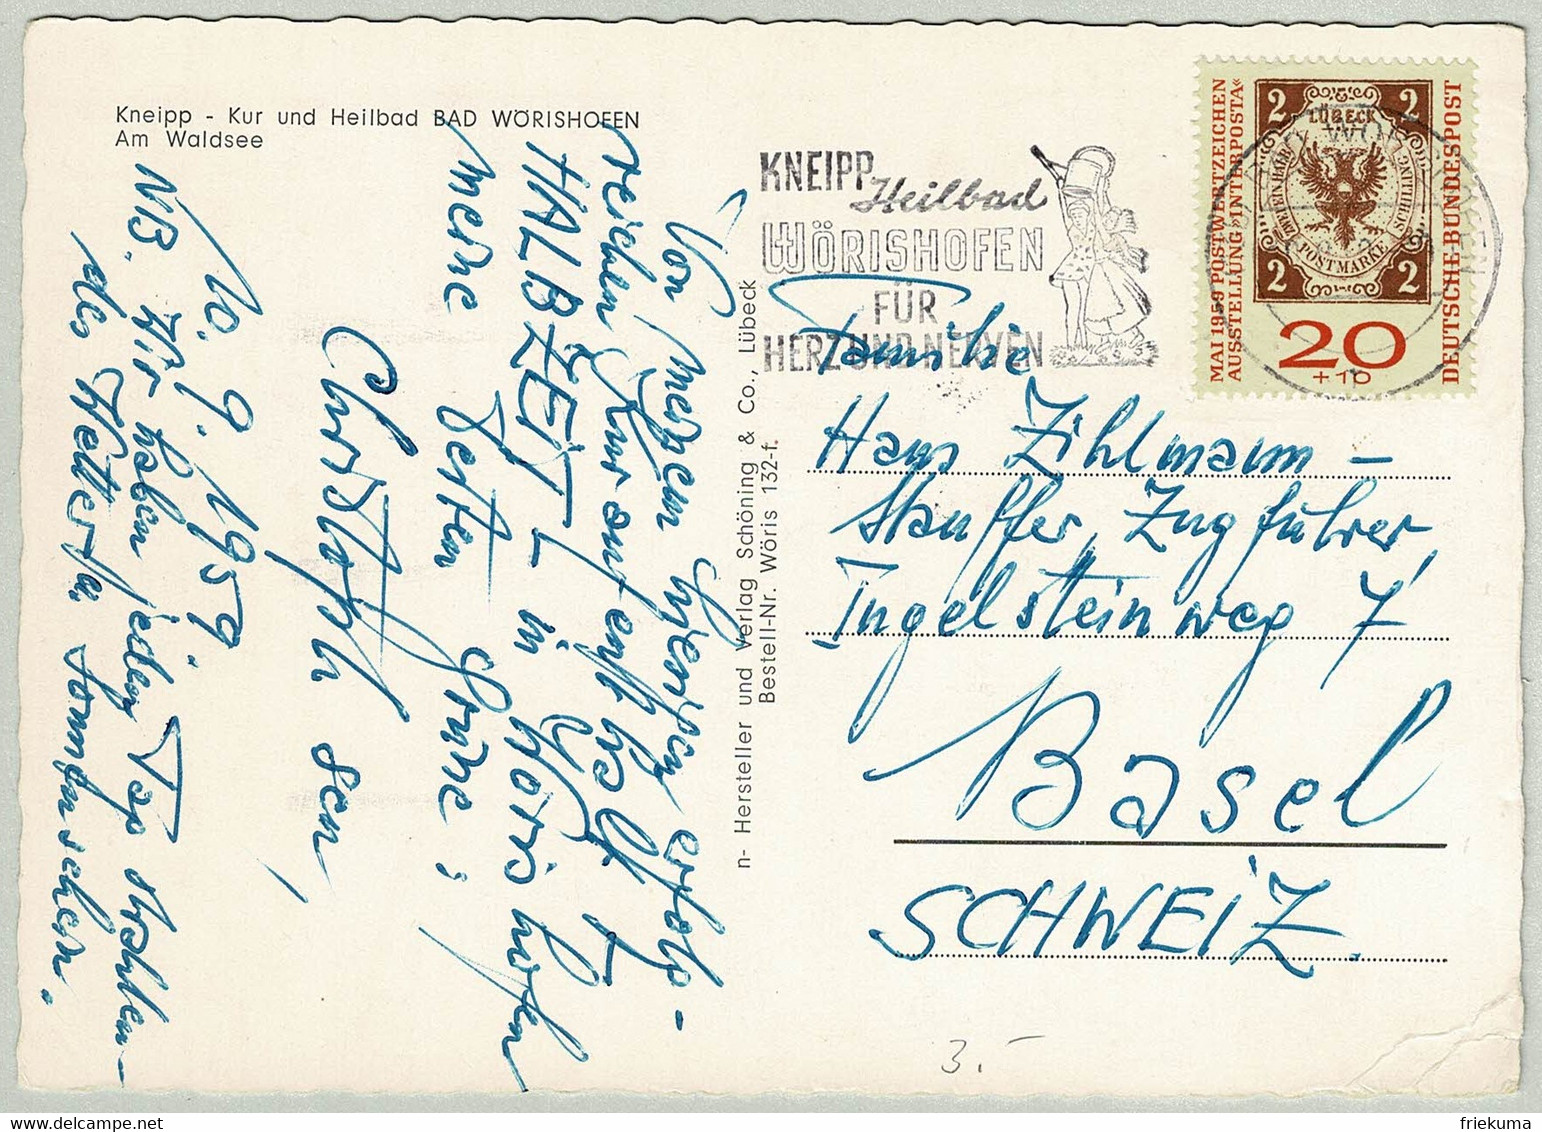 Kneipp - Kur und Heilbad BAD WÖRISHOFEN
Am Waldsee
Von meinem
reichen Kuraufenthalt
HALBZEIT in Wörishofen
meine besten Grüsse
Christoph sen,
10. 9. 1959.
NB. Wir haben jeden Tag strahlen-
des Wetter
n- Hersteller und Verlag Schöning & Co., Lübeck
Bestell-Nr. Wöris 132-f.
KNEIPP
Heilbad
WÖRISHOFEN
FÜR
HERZ UND NERVEN
MAI 1959 POSTWERTZEICHEN
AUSSTELLUNG »INTERPOSTA«
2 2
LÜBECK
ZWEI EIN HALB SCHILLING
POSTMARKE
2 2
20
+10
DEUTSCHE BUNDESPOST
Familie
Hans Zihlmann -
Stauffer, Zugführer,
Ingelsteinweg 7
Basel
SCHWEIZ.
3.-
friekuma